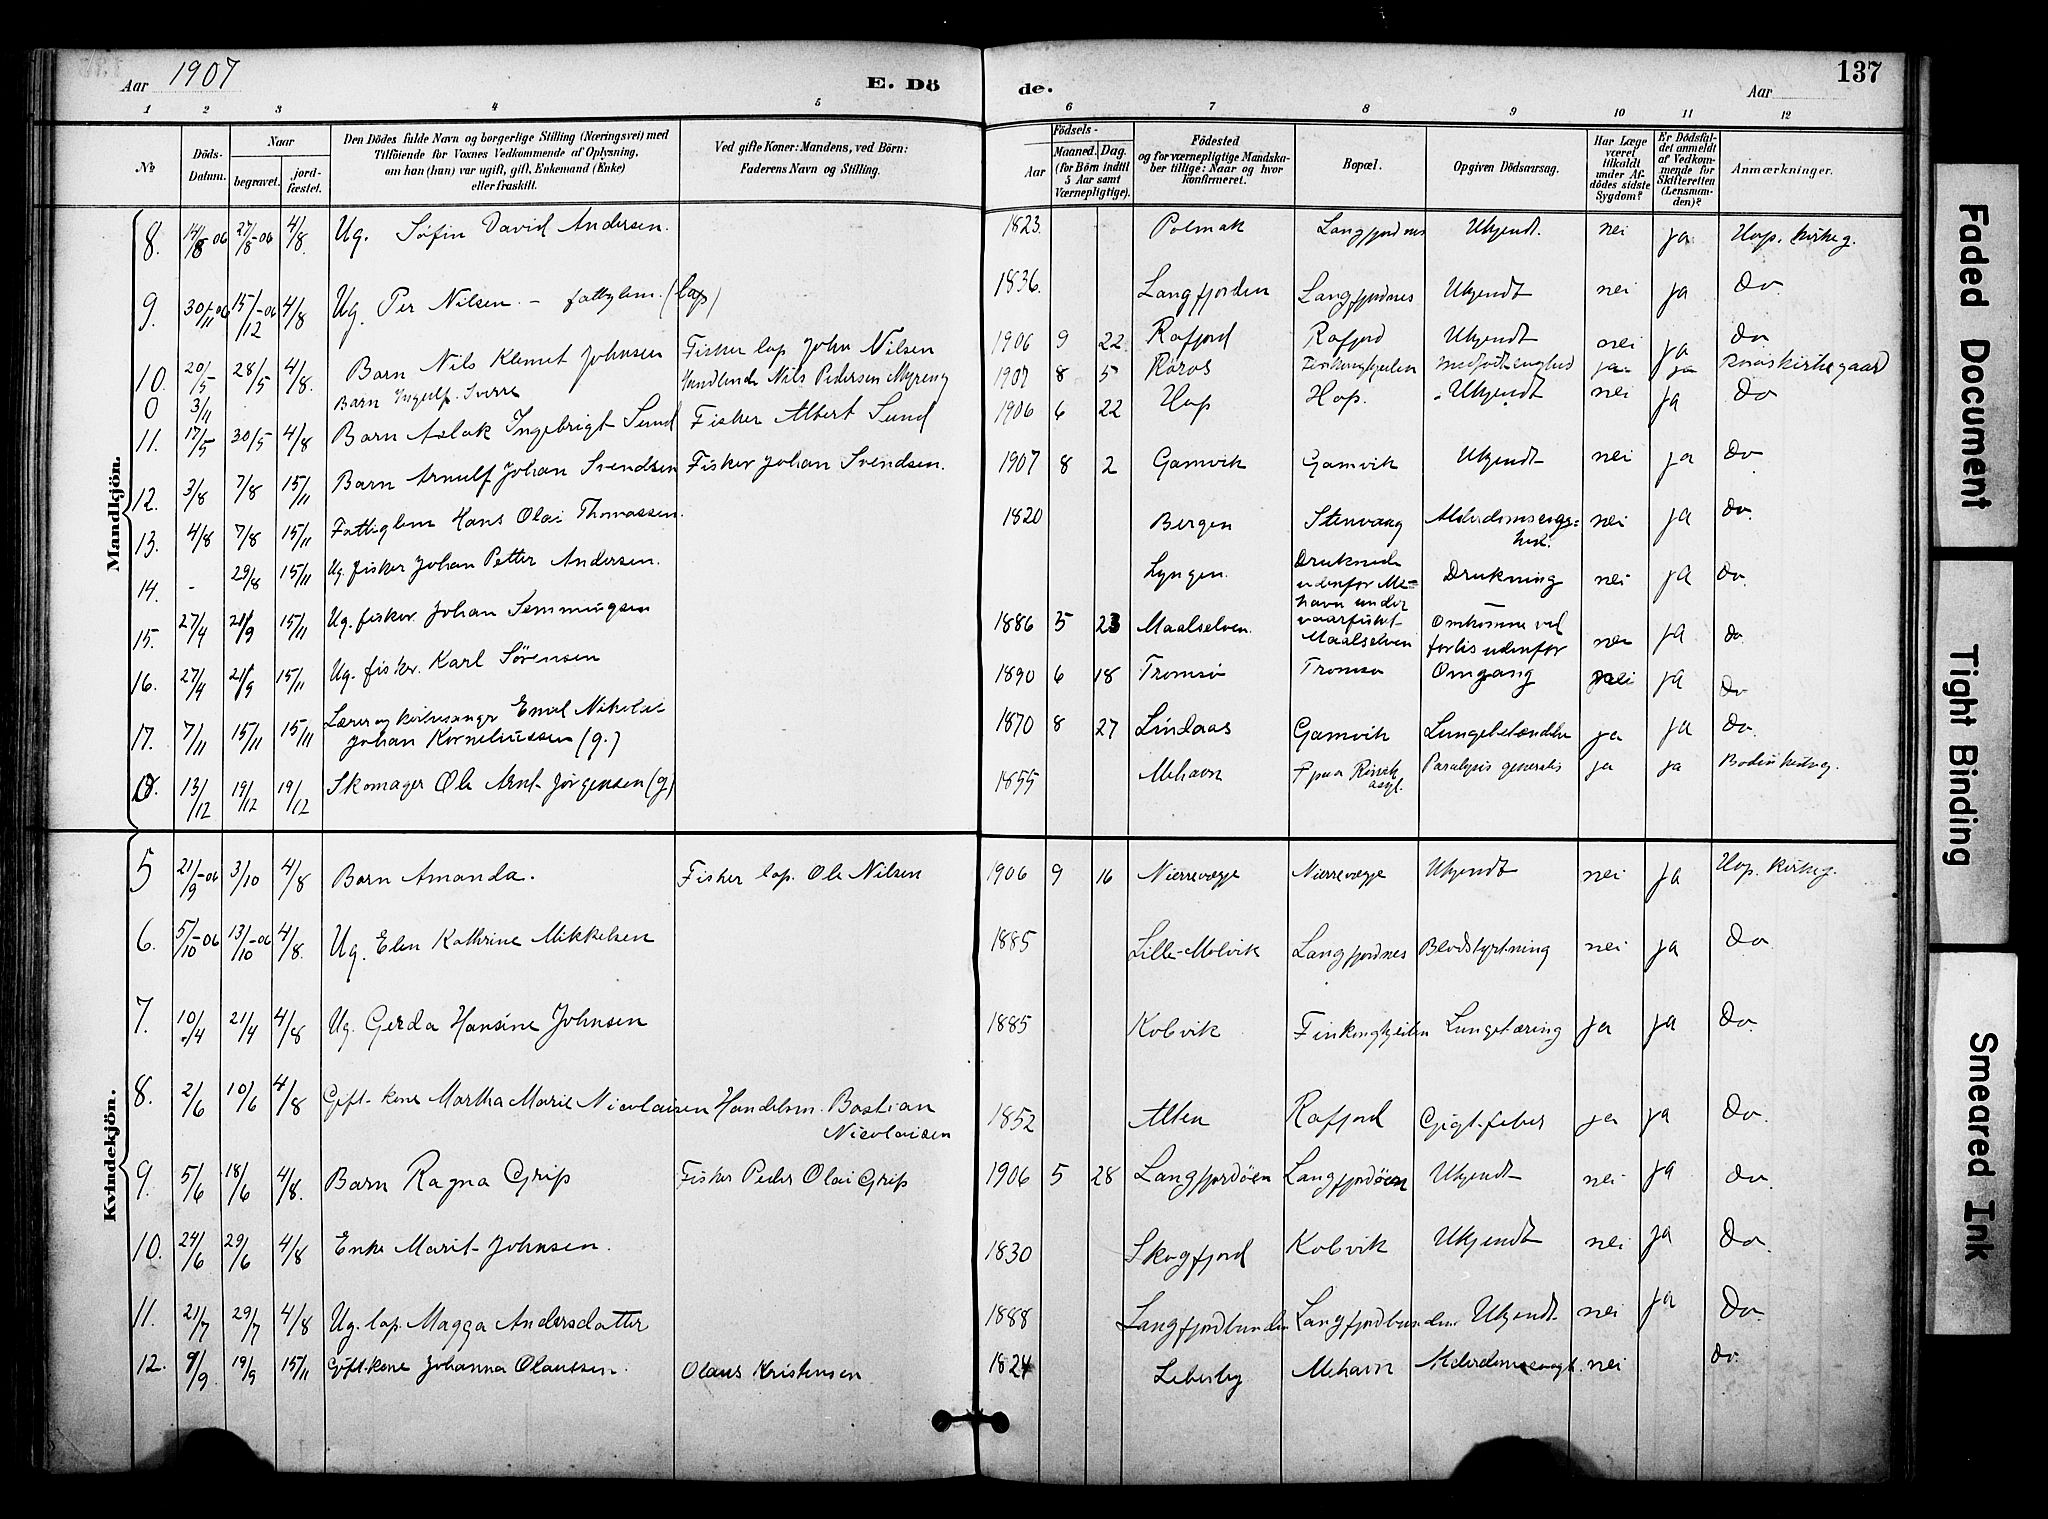 Aar 1907
E. Dö
de.
Aar
137
1 2 3 4 5 6 7 8 9 10 11 12
No
Döds-Datum.
Naar
begravet.
jord-fæstet.
Den Dödes fulde Navn og borgerlige Stilling (Næringsvei) med
Tilföiende for Voxnes Vedkommende af Oplysning,
om han (hun) var ugift, gift, Enkemand (Enke)
eller fraskilt.
Ved gifte Koner: Mandens, ved Börn:
Faderens Navn og Stilling.
Födsels-
Aar
Maaned. Dag.
(for Börn indtil
5 Aar samt
Værnepligtige).
Födested
og for værnepligtige Mandska-
ber tillige: Naar og hvor
konfirmeret.
Bopæl.
Opgiven Dödsaarsag.
Har Læge
været
tilkaldt
under Af-
dödes sidste
Sygdom?
Er Dödsfal-
det anmeldt
af Vedkom-
mende for
Skifteretten
(Lensman-
den)?
Anmærkninger.
Mandkjön.
8. 14/8-06 27/8-06 4/8. Ug. Søfin David Andersen. 1823. Polmak Langfjordnes Ukjendt. nei ja Hop. kirkeg.
9. 30/11-06 15/12-06 4/8 Ug. Per Nilsen. – fattiglem. (lap) 1836. Langfjorden Langfjordnes Ukjendt nei ja Do
10. 20/5 28/5 4/8. Barn Nils Klemet Johnsen Fisker lap John Nilsen 1906 9 22. Rafjord Rafjord Ukjendt nei ja Do
0 3/11 Barn Ingulf Sverre Handlende Nils Pedersen Myreng 1907 8 5 Røros Finkongkjeilen ja ja Røros kirkegaard
11. 17/5 30/5 4/8 Barn Aslak Ingebrigt Sund Fisker Albert Sund 1906 6 22 Hop Hop. Ukjendt nei ja Do
12. 3/8 7/8 15/11 Barn Arnulf Johan Svendsen Fisker Johan Svendsen. 1907 8 2 Gamvik Gamvik Ukjendt nei ja Do
13. 4/8 7/8 15/11 Fattiglem Hans Olai Thomassen. 1820 Bergen Stenvaag nei ja Do.
14. - 29/8 15/11 Ug. fisker Johan Petter Andersen. Lyngen. Druknede
udenfor Me-
havn under
vaarfisket Drukning nei ja Do.
15. 27/4 21/9 15/11 Ug. fisker Johan Semmingsen 1886 5 23 Maalselven. Maalselven Omkomne ved
forlis udenfor nei ja Do.
16. 27/4 21/9 15/11 Ug. fisker. Karl Sørensen 1890 6 18 Tromsø Tromsø Omgang nei ja Do
17. 7/11 15/11 15/11 Lærer og kirkesanger Emil Nikolai
Johan Korneliussen (g.) 1870 8 27 Lindaas Gamvik Lungebetændelse ja ja Do.
18. 13/12 19/12 19/12 Skomager Ole Arnt Jørgensen (g) 1855 Mehavn Rønvik
asyl. Paralysis generalis ja ja
Kvindekjön.
5 21/9-06 3/10 4/8 Barn Amanda. Fisker lap. Ole Nilsen 1906 9 16 Nierrevægge Nierrevægge Ukjendt nei ja Hop. kirkeg.
6. 5/10-06 13/10-06 4/8. Ug. Elen Kathrine Mikkelsen 1885 Lille-Molvik Langfjordnes Blodstyrtning nei ja Do.
7. 10/4 21/4 4/8 Ug. Gerda Hansine Johnsen 1885 Kobvik Finkongkjeilen Lungetæring ja ja Do.
8. 2/6 10/6 4/8 Gift. kone Martha Marie Nicolaisen Handelsm. Bastian
Nicolaisen 1852 Alten Rafjord Gigt-feber ja ja Do.
9. 5/6 18/6 4/8. Barn Ragna Grip Fisker Peder Olai Grip 1906 5 28 Langfjordøen Langfjordøen Ukjendt nei ja Do.
10. 24/6 29/6 4/8 Enke Marit Johnsen. 1830 Skogfjord Kobvik Ukjendt nei ja Do.
11. 21/7 29/7 4/8 Ug. lap. Magga Andersdatter 1888 Langfjordbunden Langfjordbunden Ukjendt nei ja Do.
12. 9/9 19/9 15/11 Gift. kone Johanna Olaussen. Olaus Kristensen 1824 Lebesby Mehavn nei Do.
Faded Document
Tight Binding
Smeared Ink